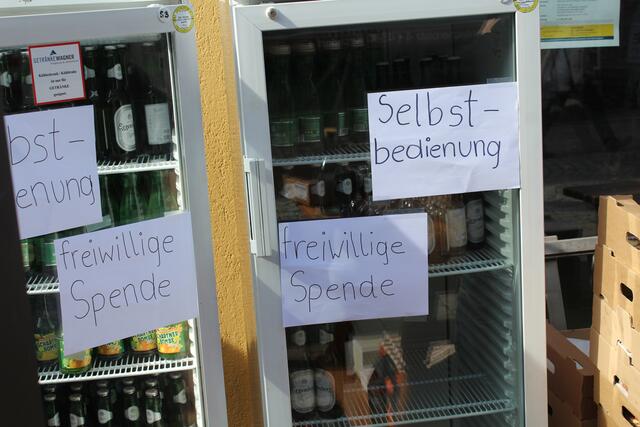 GETRÄNKE WAGNER
bst-
enung
freiwillige
Spende
Selbst-
bedienung
freiwillige
Spende